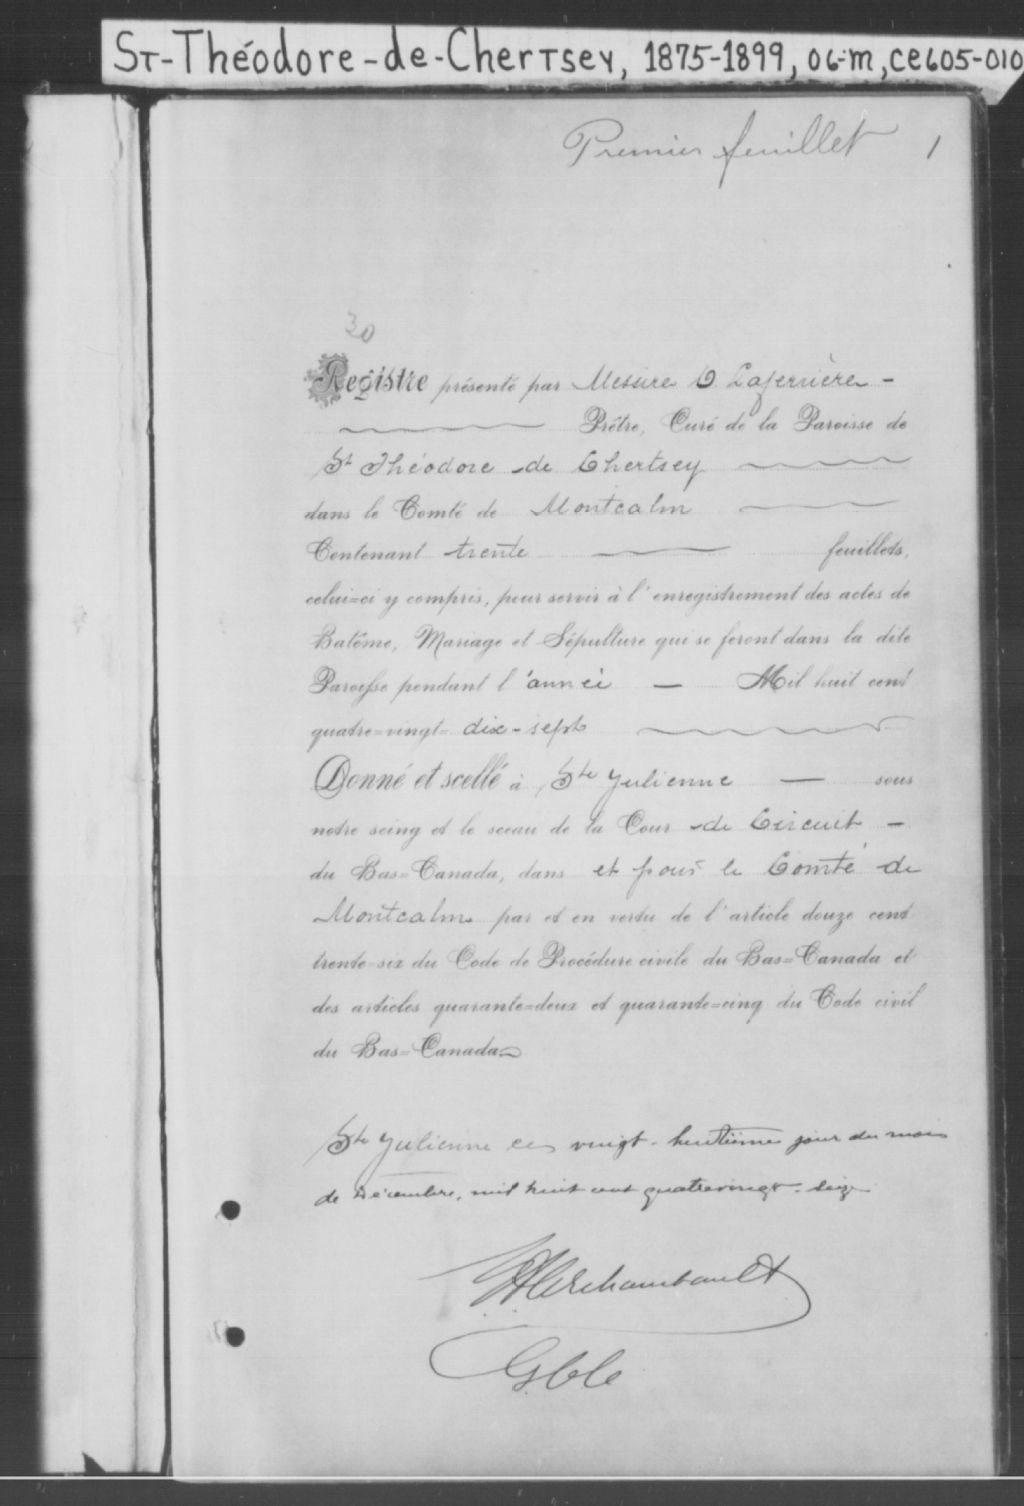 St-Théodore-de-Chertsey, 1875-1899, 06-m, ce605-010
Premier feuillet 1
30
Registre présenté par Messire O. Laferrière -
Prêtre, Curé de la Paroisse de
St Théodore de Chertsey
dans le Comté de Montcalm
Contenant trente feuillets,
celui=ci y compris, pour servir à l'enregistrement des actes de
Batême, Mariage et Sépulture qui se feront dans la dite
Paroisse pendant l'année — Mil huit cent
quatre=vingt= dix-sept
Donné et scellé à Ste Julienne — sous
notre seing et le sceau de la Cour de Circuit -
du Bas=Canada, dans et pour le Comté de
Montcalm par et en vertu de l'article douze cent
trente-six du Code de Procédure civile du Bas=Canada et
des articles quarante=deux et quarante=cinq du Code civil
du Bas=Canada
Ste Julienne ce vingt-huitième jour du mois
de Décembre, mil huit cent quatrevingt-seize
Archambault